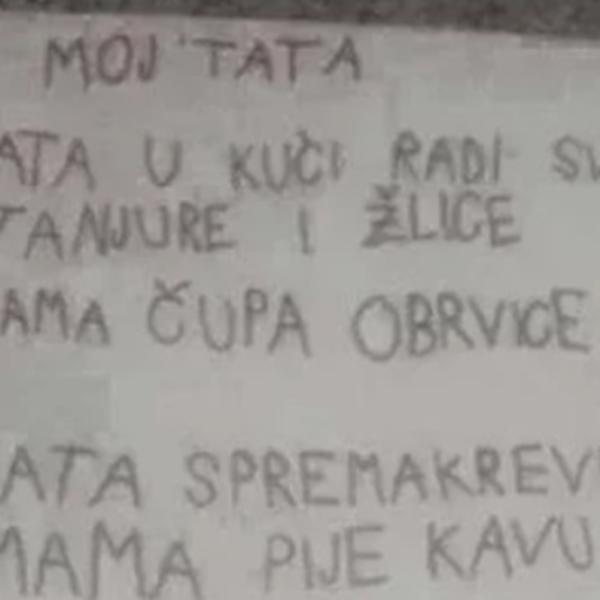 MOJ TATA
ATA U KUČI RADI SV
TANJURE I ŽLICE
AMA ČUPA OBRVICE
ATA SPREMA KREV
MAMA PIJE KAVU